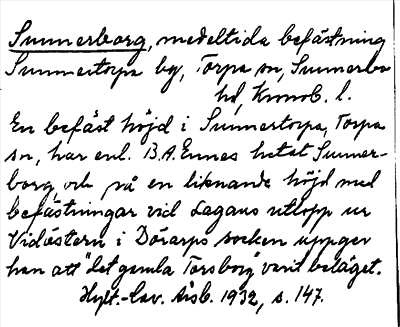 Sunnerborg, medeltida befästning
Sunnertorpa by, Torpa sn, Sunnerbo
hd, Kronob. l.
En befäst höjd i Sunnertorpa, Torpa
sn, har enl. B.A. Ennes hetat Sunner-
borg, och på en liknande höjd med
befästningar vid Lagans utlopp ur
Vidöstern i Dörarps socken uppger
han att "det gamla Torsborg" varit beläget.
Hylt.-Cav. årsb. 1932, s. 147.